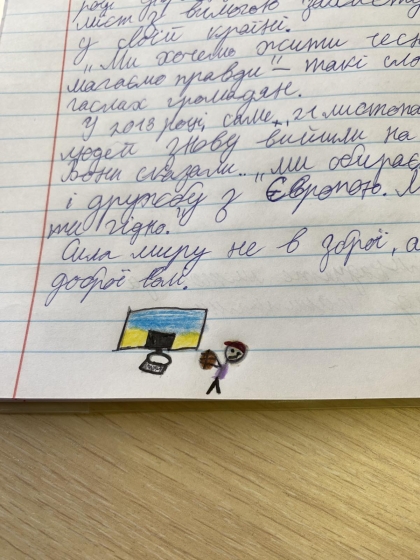 році
лист з вимогою
у своїй країні.
„Ми хочемо жити
магаємо правди" – такі
гаслах громадян.
У 2013 році, саме 21 листопа
людей знову вийшли на
Вони сказали: „Ми обирає
і дружбу з Європою.
ти гідно."
Сила миру не в зброї, а
доброї